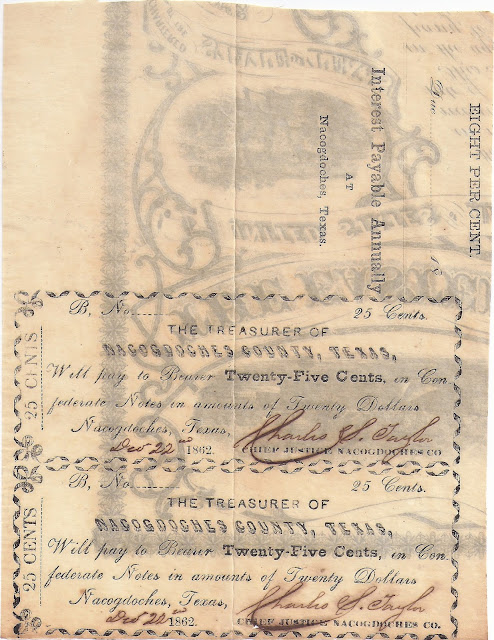 EIGHT PER CENT.
Due
$
Interest Payable Annually
AT
Nacogdoches, Texas.
B, No. 25 Cents.
THE TREASURER OF
NACOGDOCHES COUNTY, TEXAS,
Will pay to Bearer Twenty-Five Cents, in Con
federate Notes in amounts of Twenty Dollars
Nacogdoches, Texas,
Dec 22nd 1862. Charles S. Taylor
CHIEF JUSTICE NACOGDOCHES CO.
25 CENTS
B, No. 25 Cents.
THE TREASURER OF
NACOGDOCHES COUNTY, TEXAS,
Will pay to Bearer Twenty-Five Cents, in Con
federate Notes in amounts of Twenty Dollars
Nacogdoches, Texas,
Dec 22nd 1862. Charles S. Taylor
CHIEF JUSTICE NACOGDOCHES CO.
25 CENTS